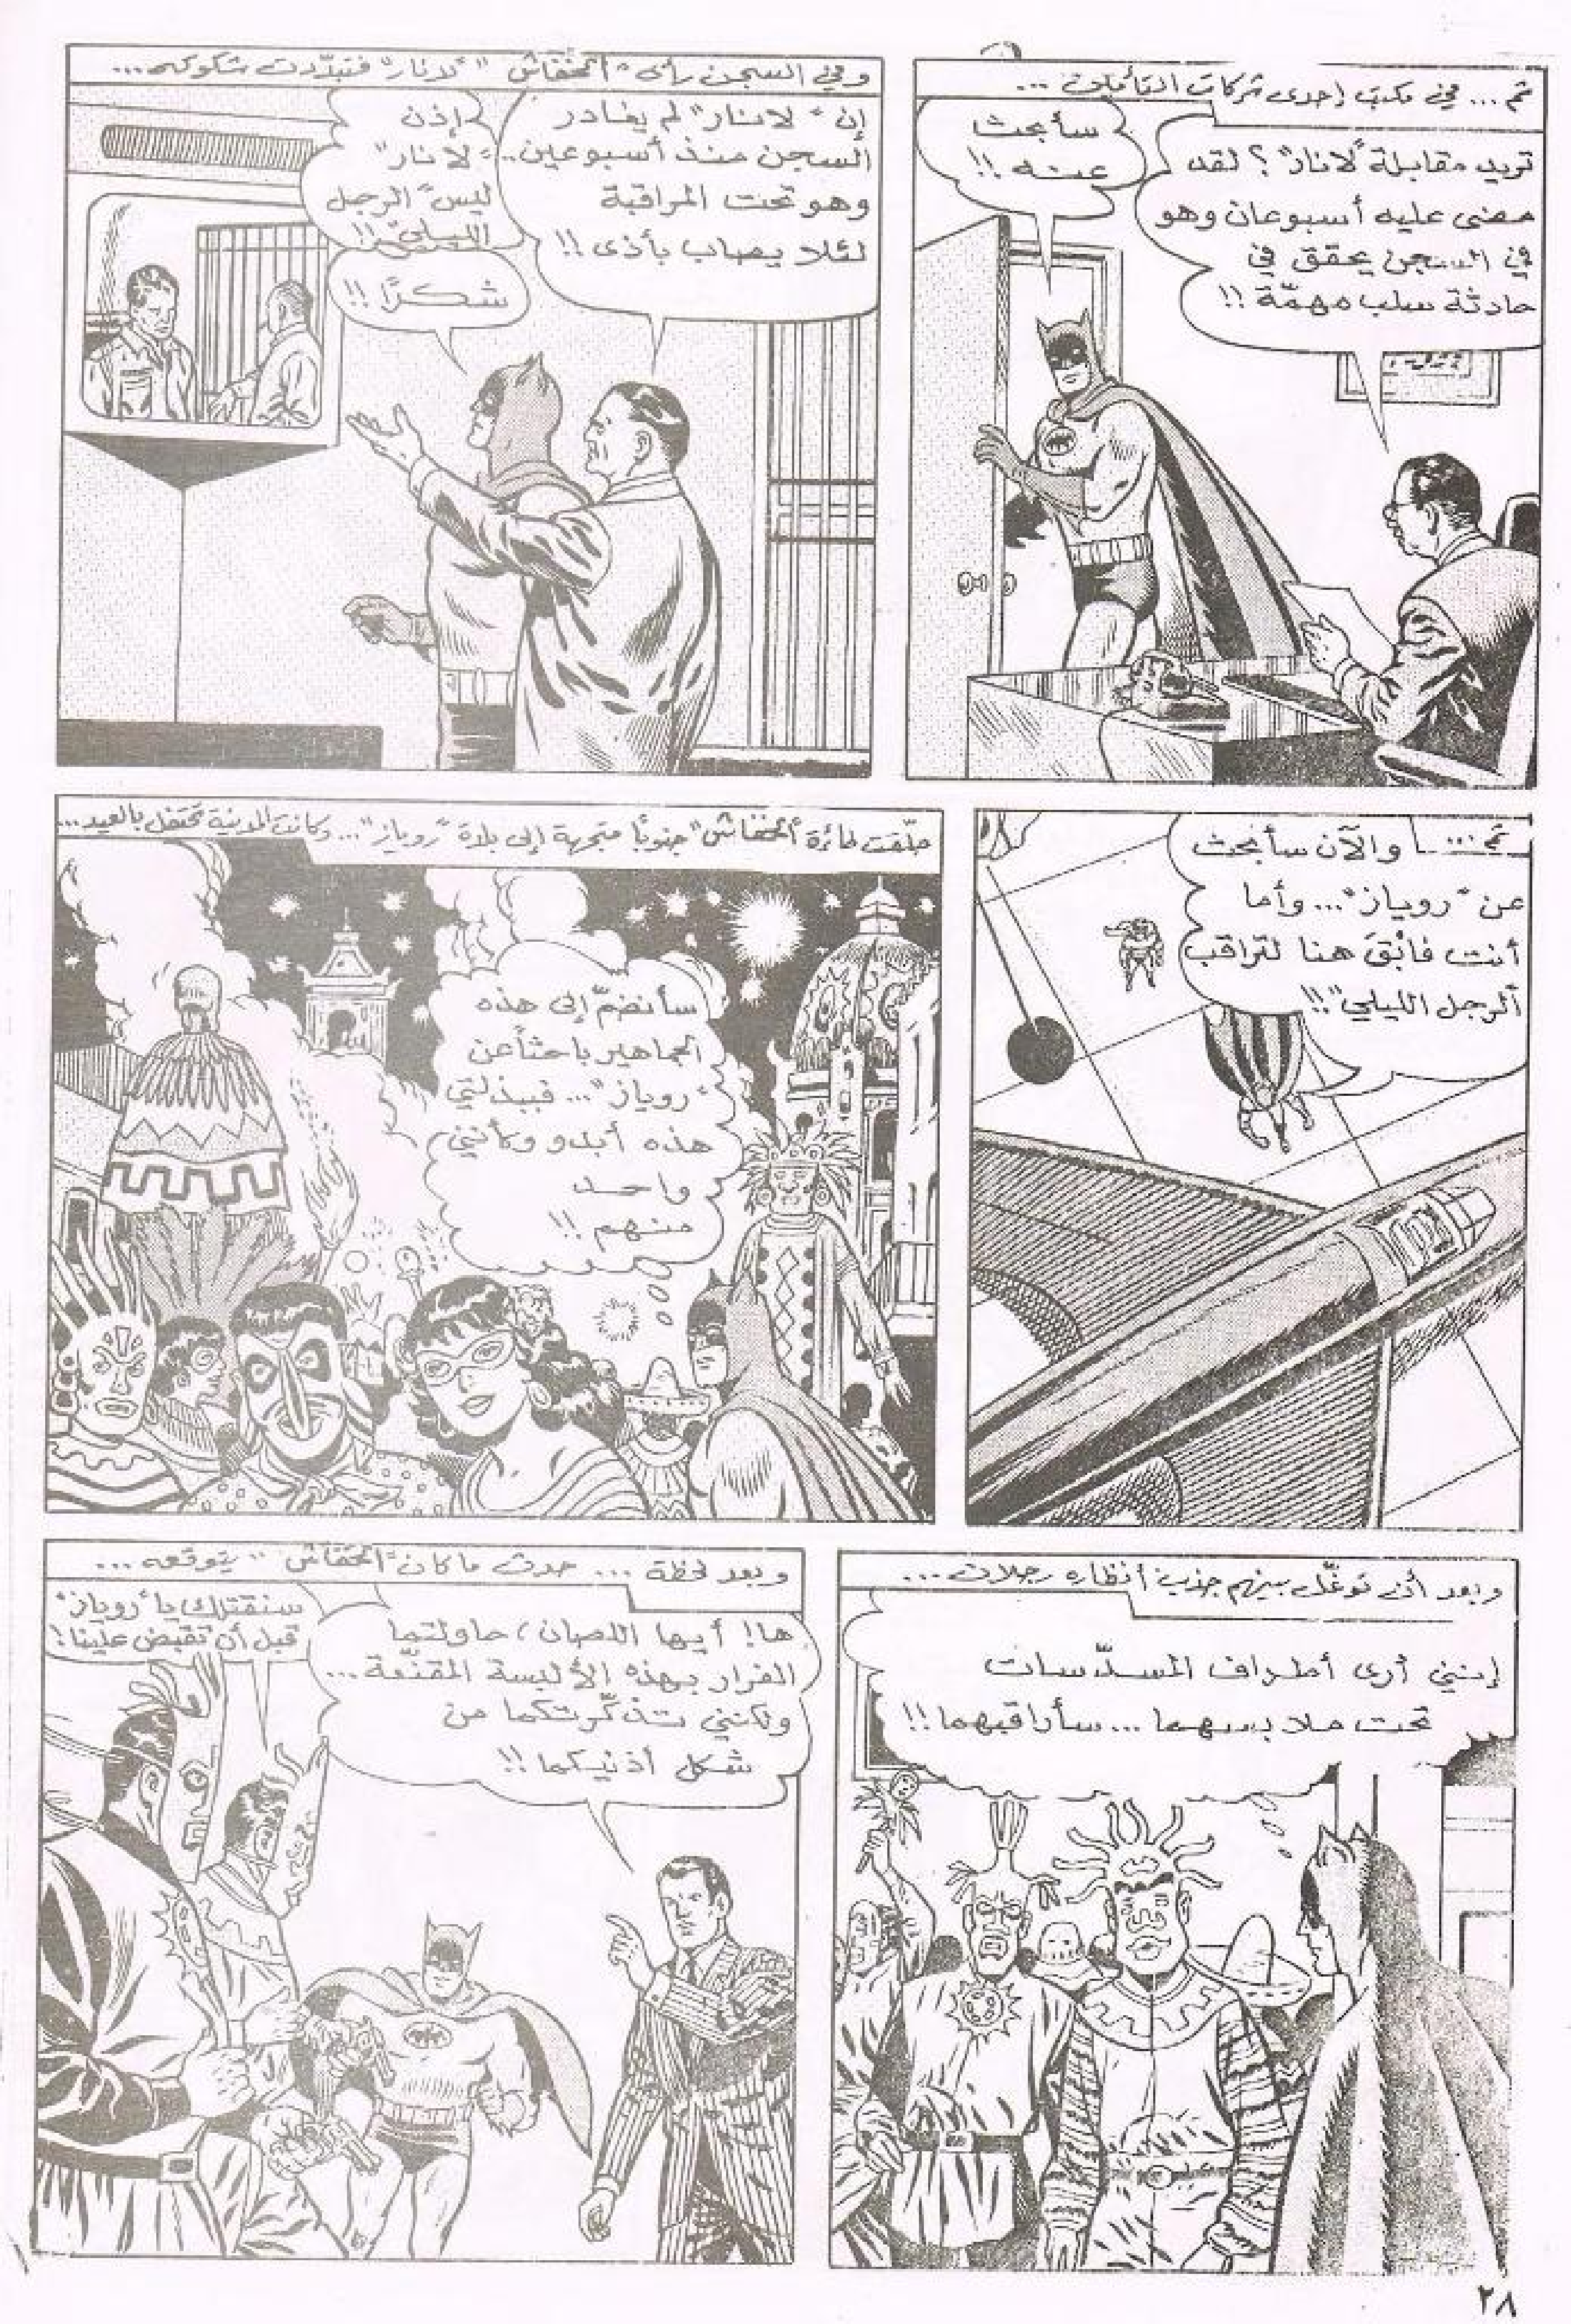 ثم... في مكتب إحدى شركات التأمين...
تريد مقابلة "لانار"؟ لقد
مضى عليه أسبوعان وهو
في السجن يحقق في
حادثة سلب مهمّة!!
سأبحث
عنه!!
وفي السجن رأى "الخفّاش" "لانار" فتبدّدت شكوكه...
إن "لانار" لم يغادر
السجن منذ أسبوعين..
وهو تحت المراقبة
لئلا يصاب بأذى!!
إذن
"لانار"
ليس "الرجل
الليلي"!!
شكرًا!!
ثم... والآن سأبحث
عن "روياز"... وأما
أنت فابْقَ هنا لتراقب
"الرجل الليلي"!!
حلّقت طائرة "الخفّاش" جنوبًا متجهة إلى بلدة "روياز"... وكانت المدينة تحتفل بالعيد...
سأنضمّ إلى هذه
الجماهير باحثاً عن
"روياز"... فببذلتي
هذه أبدو وكأنني
واحد
منهم!!
وبعد أن توغّل بينهم جذب أنظاره رجلان...
إنني أرى أطراف المسدّسات
تحت ملابسهما... سأراقبهما!!
وبعد لحظة... حدث ما كان "الخفّاش" يتوقعه...
ها! أيها اللصان، حاولتما
الفرار بهذه الألبسة المقنّعة...
ولكنني تذكّرتكما من
شكل أذنيكما!!
سنقتلك يا "روياز"
قبل أن تقبض علينا!
٢٨